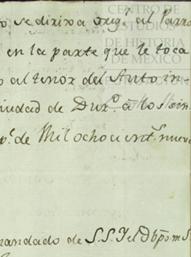 se dirixa orig.l al Parro
en la parte que le toca
al tenor del Auto in-
ciudad de Dur.o a los
de Mil ochocient.s nueve
mandado de S.S.Y. el Obpo m S
CENTRO DE
ESTUDIOS
DE HISTORIA
DE MÉXICO